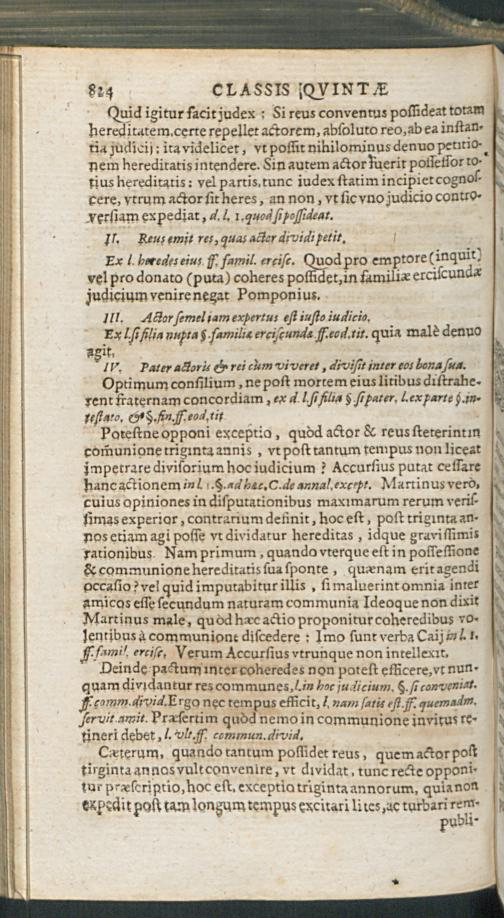 824 CLASSIS QVINTÆ
Quid igitur facit judex : Si reus conventus possideat totam
hereditatem, certe repellet actorem, absoluto reo, ab ea instan-
tia judicij : ita videlicet, vt possit nihilominus denuo petitio-
nem hereditatis intendere. Sin autem actor fuerit possessor to-
tius hereditatis : vel partis, tunc iudex statim incipiet cognos-
cere, vtrum actor sit heres, an non, vt sic vno judicio contro-
versiam expediat, d. l. 1. quod si possideat.
II. Reus emit res, quas actor dividi petit.
Ex l. heredes eius ff. famil. ercisc. Quod pro emptore (inquit)
vel pro donato (puta) coheres possidet, in familiæ erciscundæ
judicium venire negat Pomponius.
III. Actor semel iam expertus est iusto iudicio.
Ex l. si filia nupta §. familiæ erciscundæ. ff. eod. tit. quia malè denuo
agit.
IV. Pater actoris & rei cùm viveret, divisit inter eos bona sua.
Optimum consilium, ne post mortem eius litibus distrahe-
rent fraternam concordiam, ex d. l. si filia §. si pater. l. ex parte §. in-
testato. & §. fin. ff. eod. tit
Potestne opponi exceptio, quòd actor & reus steterint in
comunione triginta annis, vt post tantum tempus non liceat
impetrare divisorium hoc iudicium ? Accursius putat cessare
hanc actionem in l. 1. §. ad hæc, C. de annal. except. Martinus verò,
cuius opiniones in disputationibus maximarum rerum veris-
simas experior, contrarium definit, hoc est, post triginta an-
nos etiam agi posse vt dividatur hereditas, idque gravissimis
rationibus. Nam primum, quando vterque est in possessione
& communione hereditatis sua sponte, quænam erit agendi
occasio ? vel quid imputabitur illis, si maluerint omnia inter
amicos esse secundum naturam communia Ideoque non dixit
Martinus male, quòd hæc actio proponitur coheredibus vo-
lentibus à communione discedere : Imo sunt verba Caij in l. 1.
ff. famil. ercisc. Verum Accursius vtrunque non intellexit.
Deinde pactum inter coheredes non potest efficere, vt nun-
quam dividantur res communes, l. in hoc judicium. §. si conveniat.
ff. comm. divid. Ergo nec tempus efficit, l. nam satis est. ff. quemadm.
servit. amit. Præsertim quòd nemo in communione invitus re-
tineri debet, l. vlt. ff. commun. divid.
Cæterum, quando tantum possidet reus, quem actor post
tirginta annos vult convenire, vt dividat, tunc recte opponi-
tur præscriptio, hoc est, exceptio triginta annorum, quia non
expedit post tam longum tempus excitari lites, ac turbari rem-
publi-